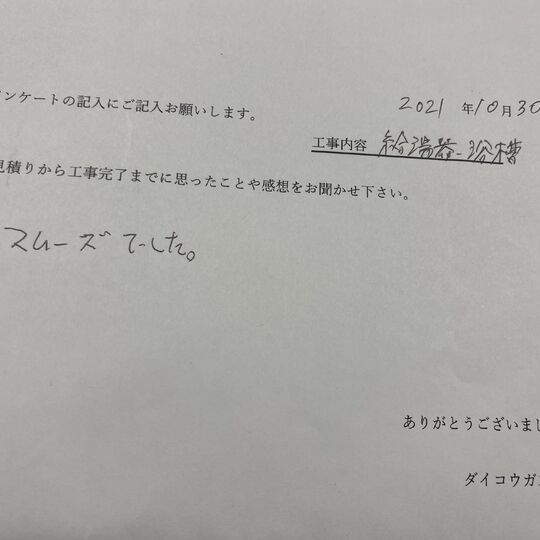 ンケートの記入にご記入お願いします。
2021 年10月30
工事内容 給湯器-浴槽
見積りから工事完了までに思ったことや感想をお聞かせ下さい。
スムーズでした。
ありがとうございまし
ダイコウガ